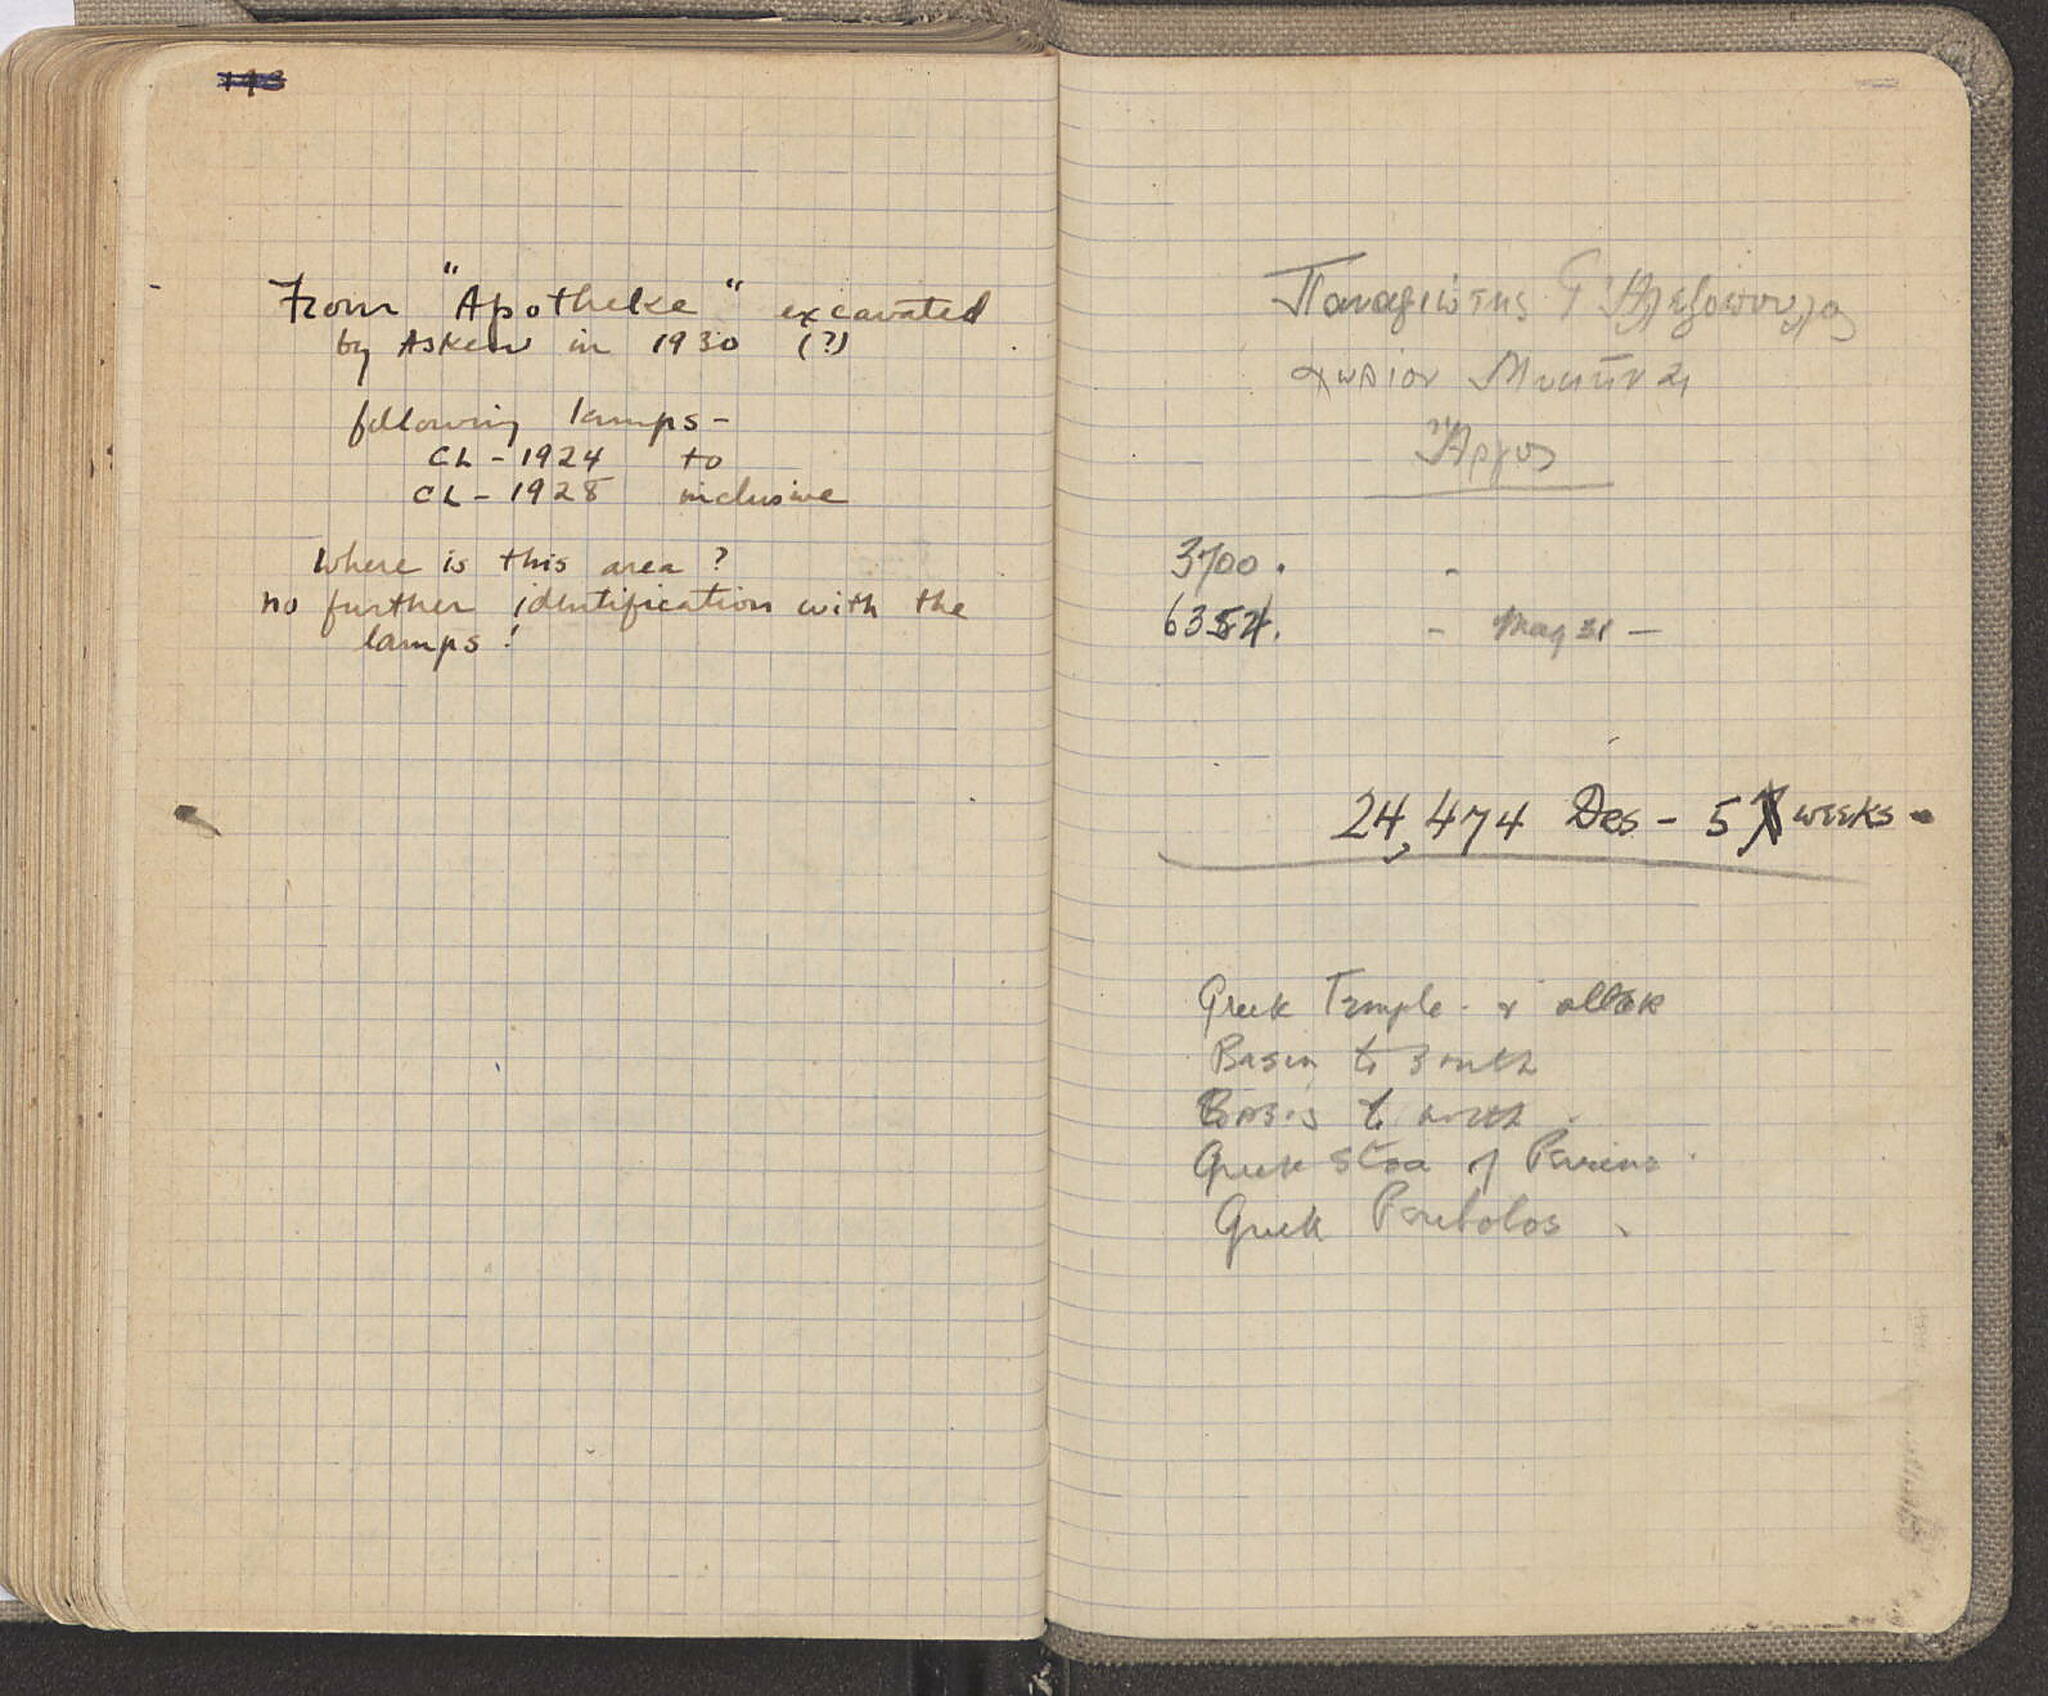 From "Apotheke" excavated
by Askew in 1930 (?)
following lamps -
CL - 1924 to
CL - 1928 inclusive
Where is this area ?
no further identification with the
lamps !
Παναγιώτης Γ Ἀλεξόπουλος
χωρίον
Ἄργος
3700.
- May 31 -
24,474 Des - 5 weeks -
Greek Temple &
Basin to south
to north
Greek Stoa of Peirene
Greek Peribolos